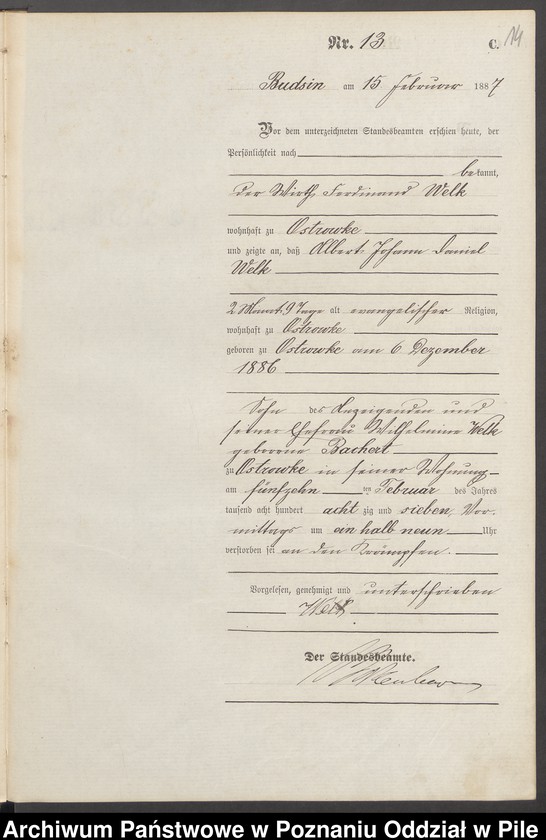 14
Nr. 13 C.
Budsin am 15 Februar 1887
Vor dem unterzeichneten Standesbeamten erschien heute, der
Persönlichkeit nach
bekannt,
der Wirth Ferdinand Welk
wohnhaft zu Ostrowke
und zeigte an, daß Albert Johann Daniel
Welk
2 Monat 9 Tage alt evangelischer Religion,
wohnhaft zu Ostrowke
geboren zu Ostrowke am 6 Dezember
1886
Sohn des Anzeigenden und
seiner Ehefrau Wilhelmine Welk
geborene Bachert
zu Ostrowke in seiner Wohnung
am fünfzehn ten Februar des Jahres
tausend acht hundert acht zig und sieben, Vor-
mittags um ein halb neun Uhr
verstorben sei an den Krämpfen.
Vorgelesen, genehmigt und unterschrieben
Welk
Der Standesbeamte.
Archiwum Państwowe w Poznaniu Oddział w Pile